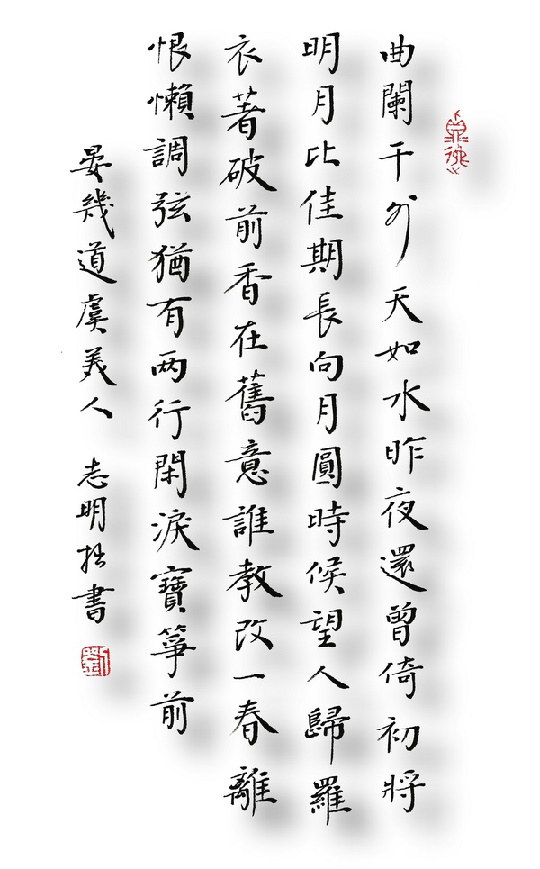 曲闌干外天如水昨夜還曾倚初將
明月比佳期長向月圓時候望人歸羅
衣著破前香在舊意誰教改一春離
恨懶調弦猶有兩行閑淚寶箏前
晏幾道虞美人 志明拙書
劉